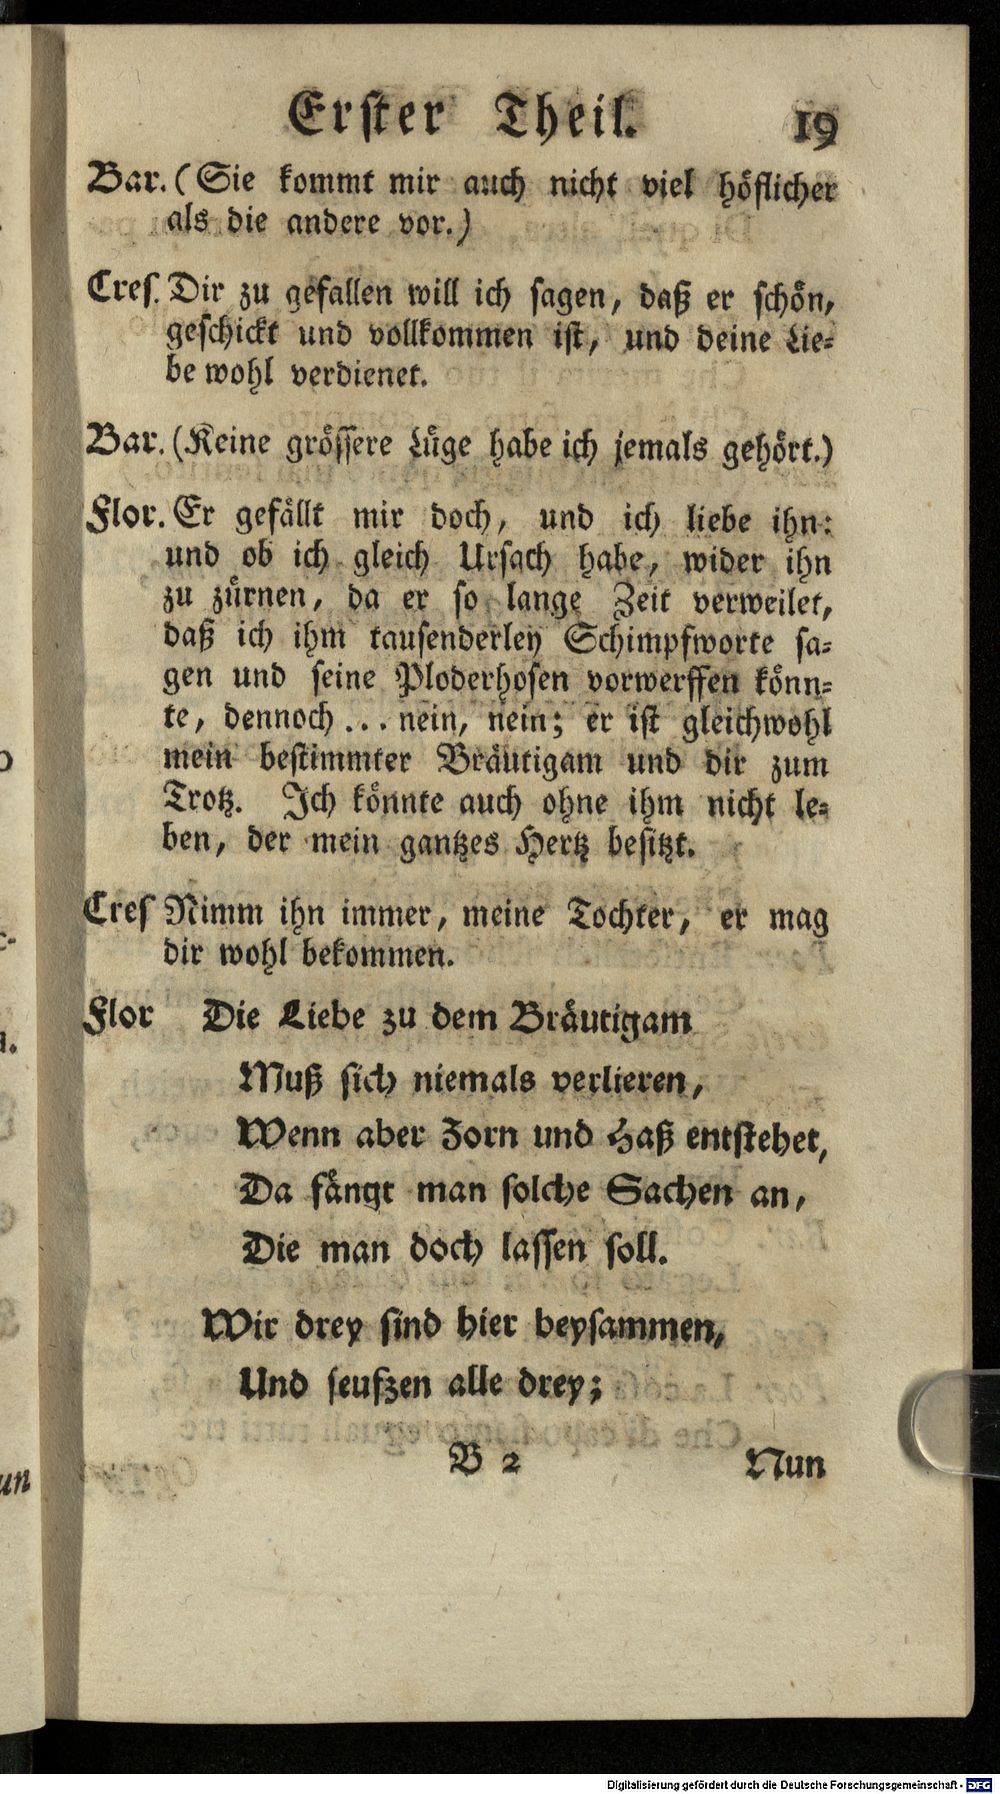 Erster Theil. 19
Bar. (Sie kommt mir auch nicht viel höflicher
als die andere vor.)
Cres. Dir zu gefallen will ich sagen, daß er schön,
geschickt und vollkommen ist, und deine Lie-
be wohl verdienet.
Bar. (Keine grössere Lüge habe ich jemals gehört.)
Flor. Er gefällt mir doch, und ich liebe ihn:
und ob ich gleich Ursach habe, wider ihn
zu zürnen, da er so lange Zeit verweilet,
daß ich ihm tausenderley Schimpfworte sa-
gen und seine Ploderhosen vorwerffen könn-
te, dennoch ... nein, nein; er ist gleichwohl
mein bestimmter Bräutigam und dir zum
Trotz. Ich könnte auch ohne ihm nicht le-
ben, der mein gantzes Hertz besitzt.
Cres Nimm ihn immer, meine Tochter, er mag
dir wohl bekommen.
Flor Die Liebe zu dem Bräutigam
Muß sich niemals verlieren,
Wenn aber Zorn und Haß entstehet,
Da fängt man solche Sachen an,
Die man doch lassen soll.
Wir drey sind hier beysammen,
Und seufzen alle drey;
B 2 Nun
Digitalisierung gefördert durch die Deutsche Forschungsgemeinschaft - DFG